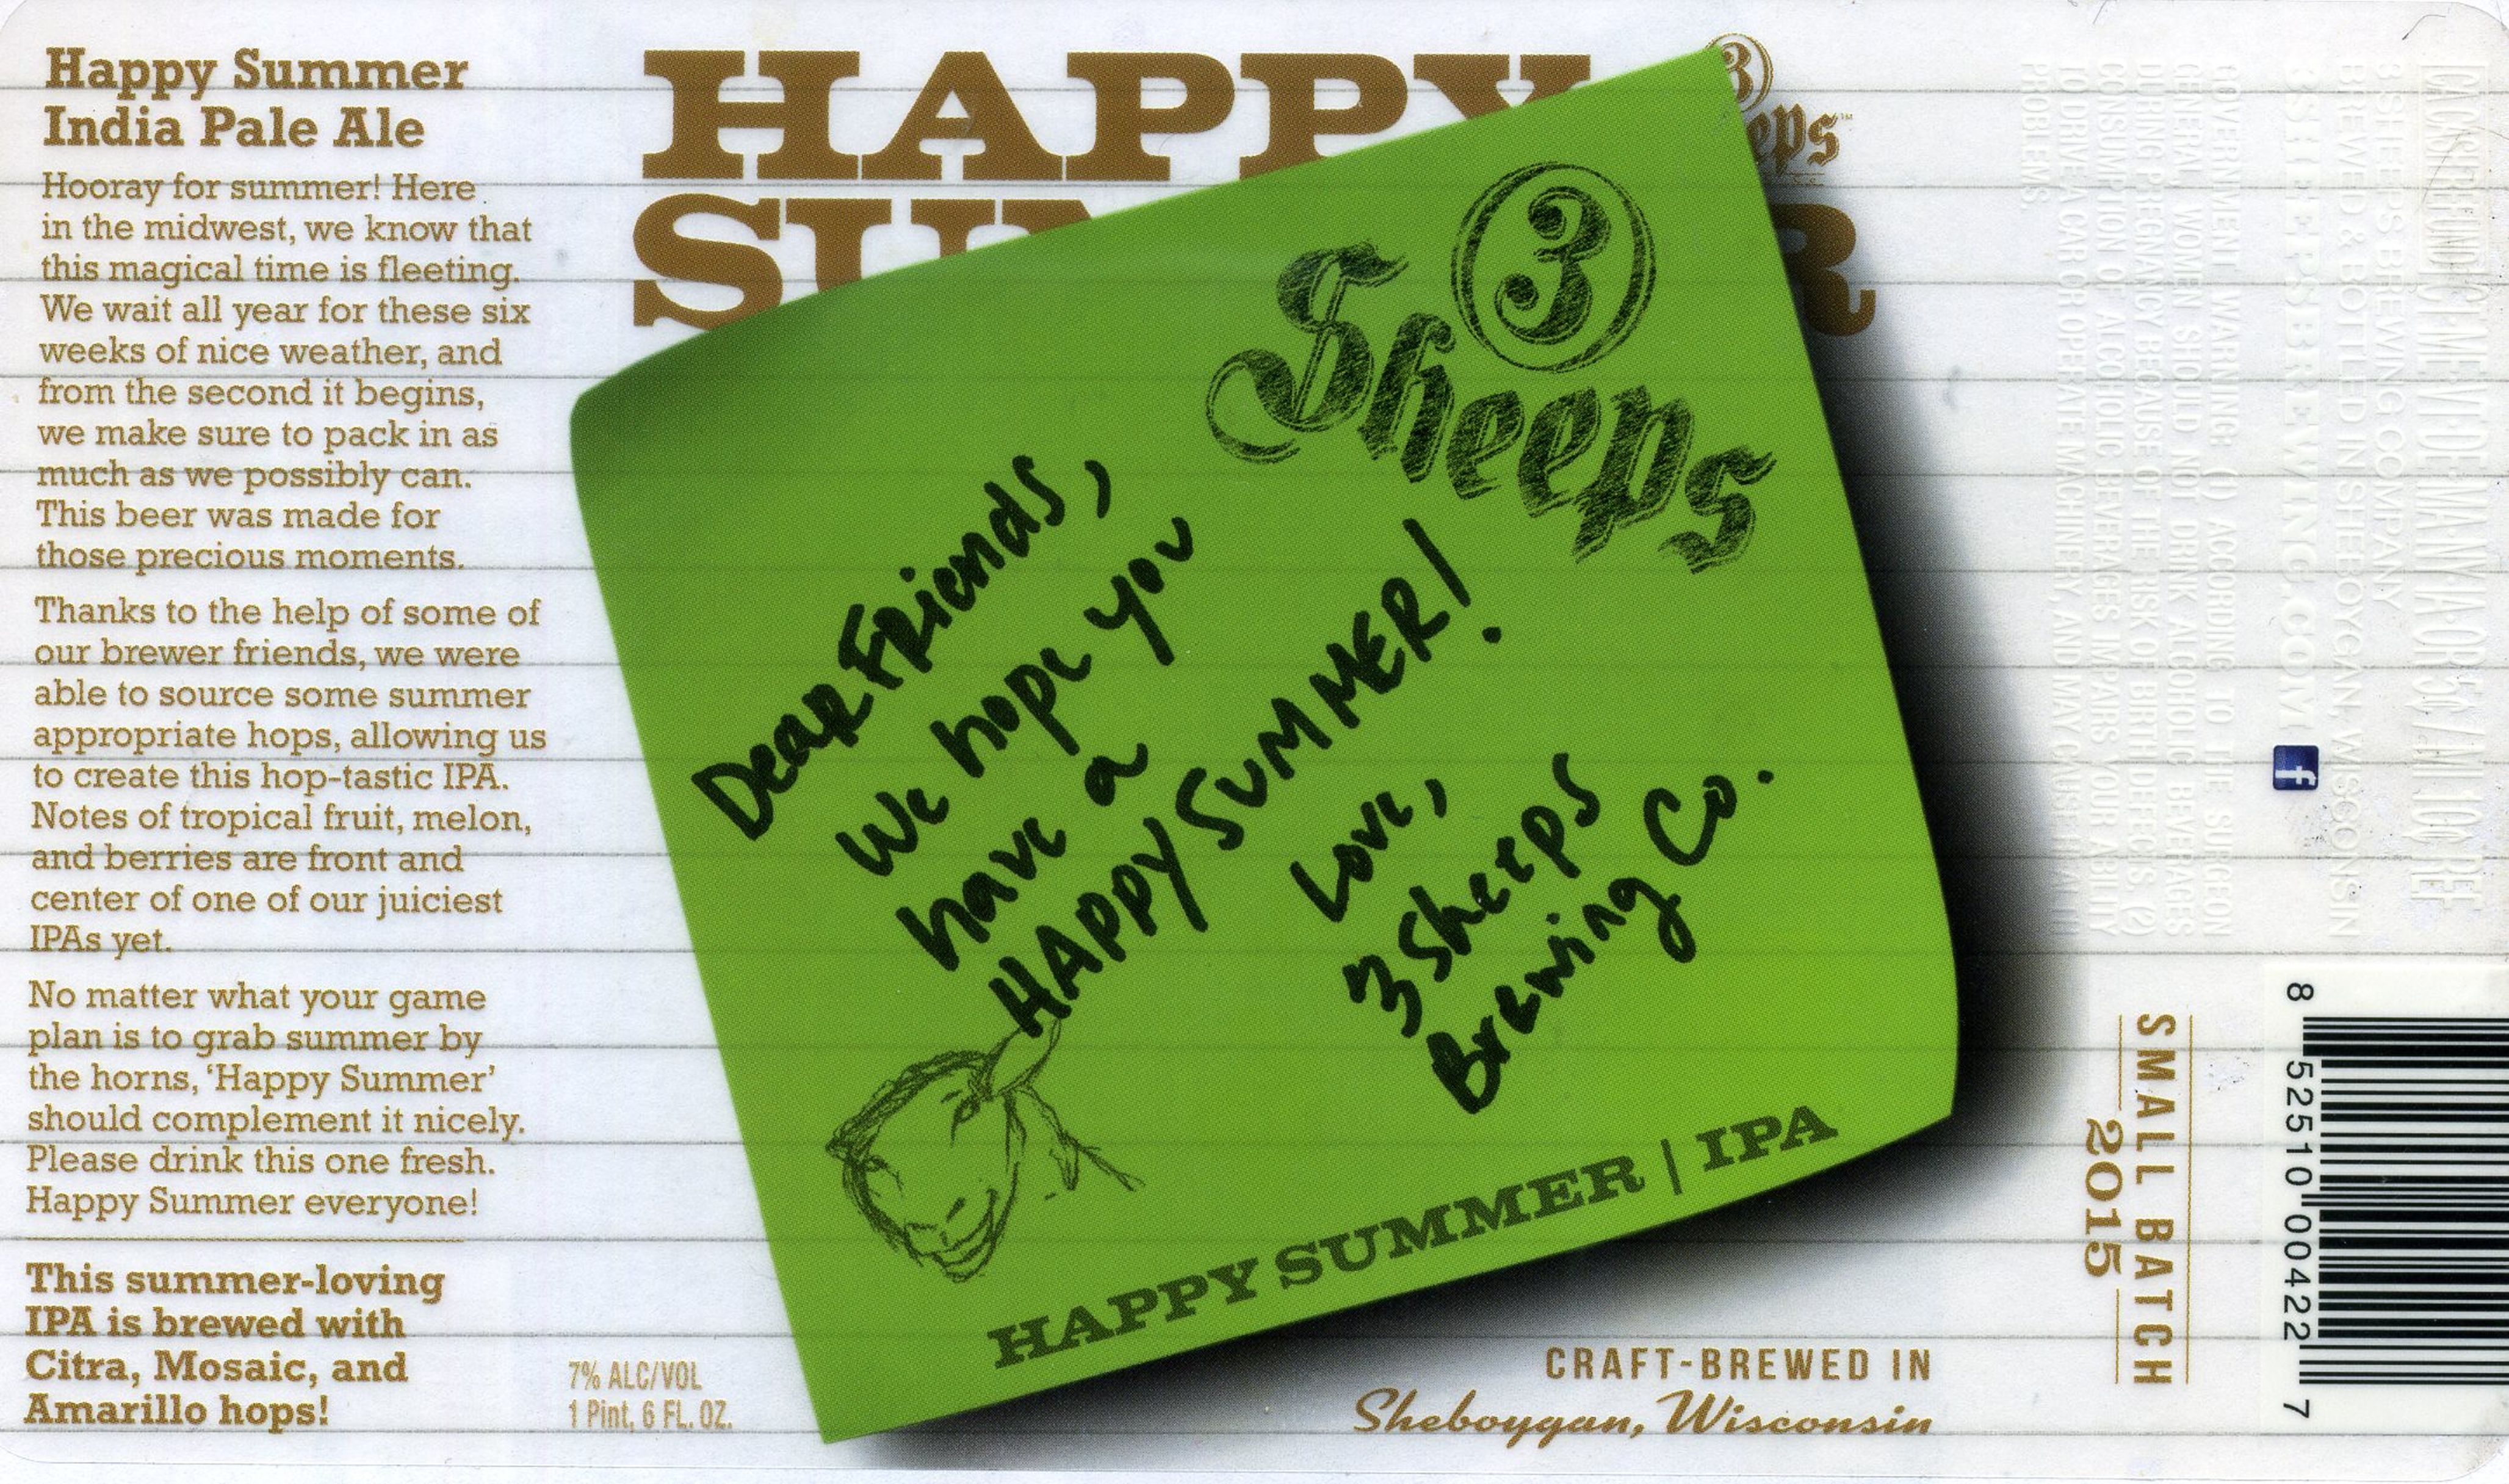 Happy Summer
India Pale Ale
Hooray for summer! Here
in the midwest, we know that
this magical time is fleeting.
We wait all year for these six
weeks of nice weather, and
from the second it begins,
we make sure to pack in as
much as we possibly can.
This beer was made for
those precious moments.
Thanks to the help of some of
our brewer friends, we were
able to source some summer
appropriate hops, allowing us
to create this hop-tastic IPA.
Notes of tropical fruit, melon,
and berries are front and
center of one of our juiciest
IPAs yet.
No matter what your game
plan is to grab summer by
the horns, ‘Happy Summer’
should complement it nicely.
Please drink this one fresh.
Happy Summer everyone!
This summer-loving
IPA is brewed with
Citra, Mosaic, and
Amarillo hops!
HAPPY
SUM R
3
eeps™
3
Sheeps
Dear Friends,
We hope you
have a
HAPPY SUMMER!
Love,
3 Sheeps
Brewing Co.
HAPPY SUMMER | IPA
7% ALC/VOL
1 Pint, 6 FL. OZ.
CRAFT-BREWED IN
Sheboygan, Wisconsin
SMALL BATCH
2015
IA·CA CA REFUND·CT·ME·VT·DE·MA·NY·IA·OR 5¢/MI 10¢ REF
3 SHEEPS BREWING COMPANY
BREWED & BOTTLED IN SHEBOYGAN, WISCONSIN
3SHEEPSBREWING.COM f
GOVERNMENT WARNING: (1) ACCORDING TO THE SURGEON
GENERAL, WOMEN SHOULD NOT DRINK ALCOHOLIC BEVERAGES
DURING PREGNANCY BECAUSE OF THE RISK OF BIRTH DEFECTS. (2)
CONSUMPTION OF ALCOHOLIC BEVERAGES IMPAIRS YOUR ABILITY
TO DRIVE A CAR OR OPERATE MACHINERY, AND MAY CAUSE HEALTH
PROBLEMS.
8 52510 00422 7